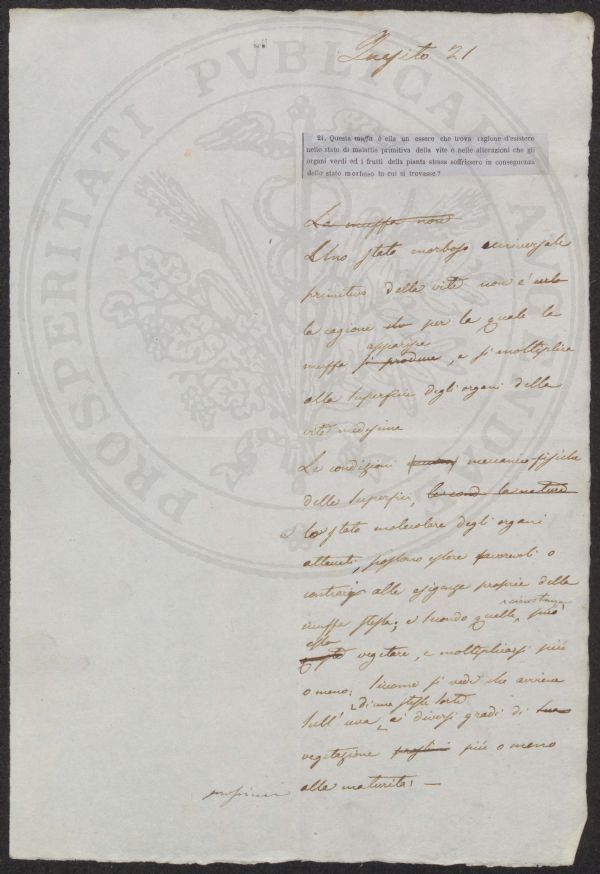 Quesito 21
21. Questa muffa è ella un essere che trova ragione d'esistere
nello stato di malattia primitiva della vite e nelle alterazioni che gli
organi verdi ed i frutti della pianta stessa soffrissero in conseguenza
dello stato morboso in cui si trovasse?
La muffa non
Uno stato morboso universale
primitivo della vite non è
la cagione per la quale la
apparisce
muffa si produce, e si moltiplica
alla superficie degli organi della
vite medesima
Le condizioni meccanico-fisiche
delle superfici, le cond la natura
lo stato molecolare degli organi
attenuti, possono essere favorevoli o
contrarj alle esigenze proprie della
circostanze
muffa stessa; e secondo quelle, può
essa
vegetare, e moltiplicarsi più
o meno; siccome si vede che avviene
di una stessa sorte
sull'uva, ai diversi gradi di sua
vegetazione più o meno
prossimi alla maturità. —
PROSPERITATI PUBLICAE AUGENDAE